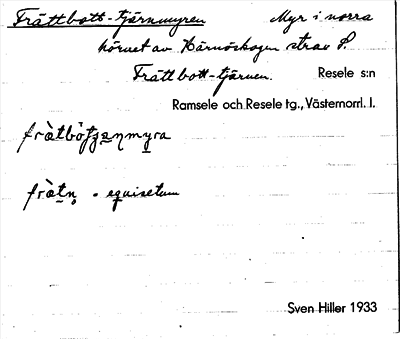 Frättbott-tjärnmyren Myr i norra
hörnet av Härnöskogen strax S.
Frättbott-tjärnen. Resele s:n
Ramsele och Resele tg., Västernorrl. l.
frätn - equisetum
Sven Hiller 1933